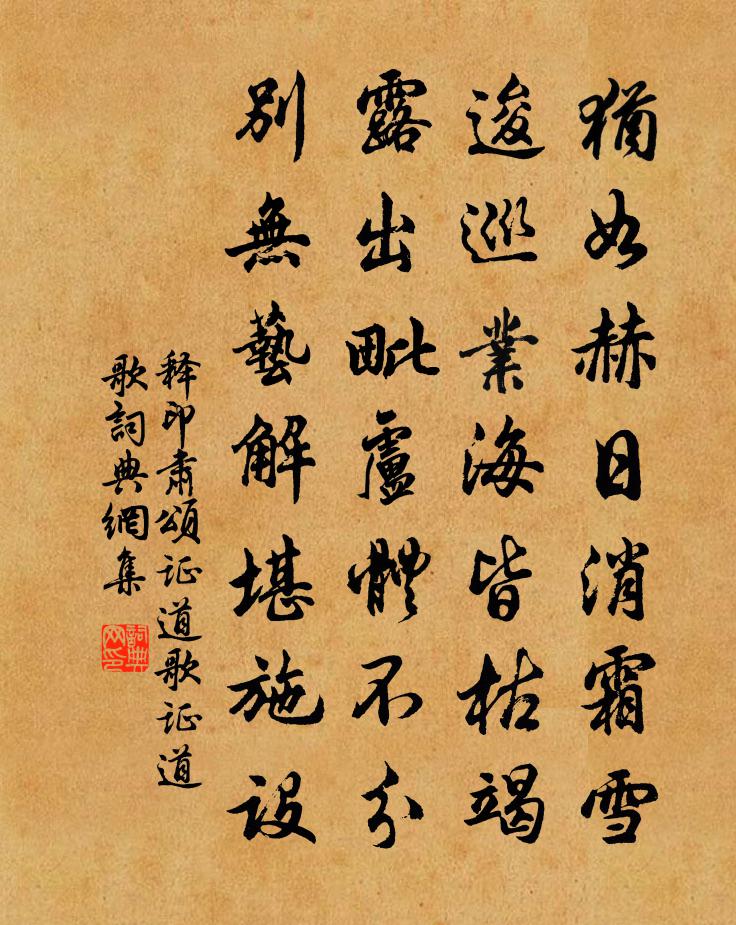 猶如赫日消霜雪
逡巡業海皆枯竭
露出毗盧體不分
別無藝解堪施設
释印肅頌证道歌证道
歌詞典網集
詞典网印